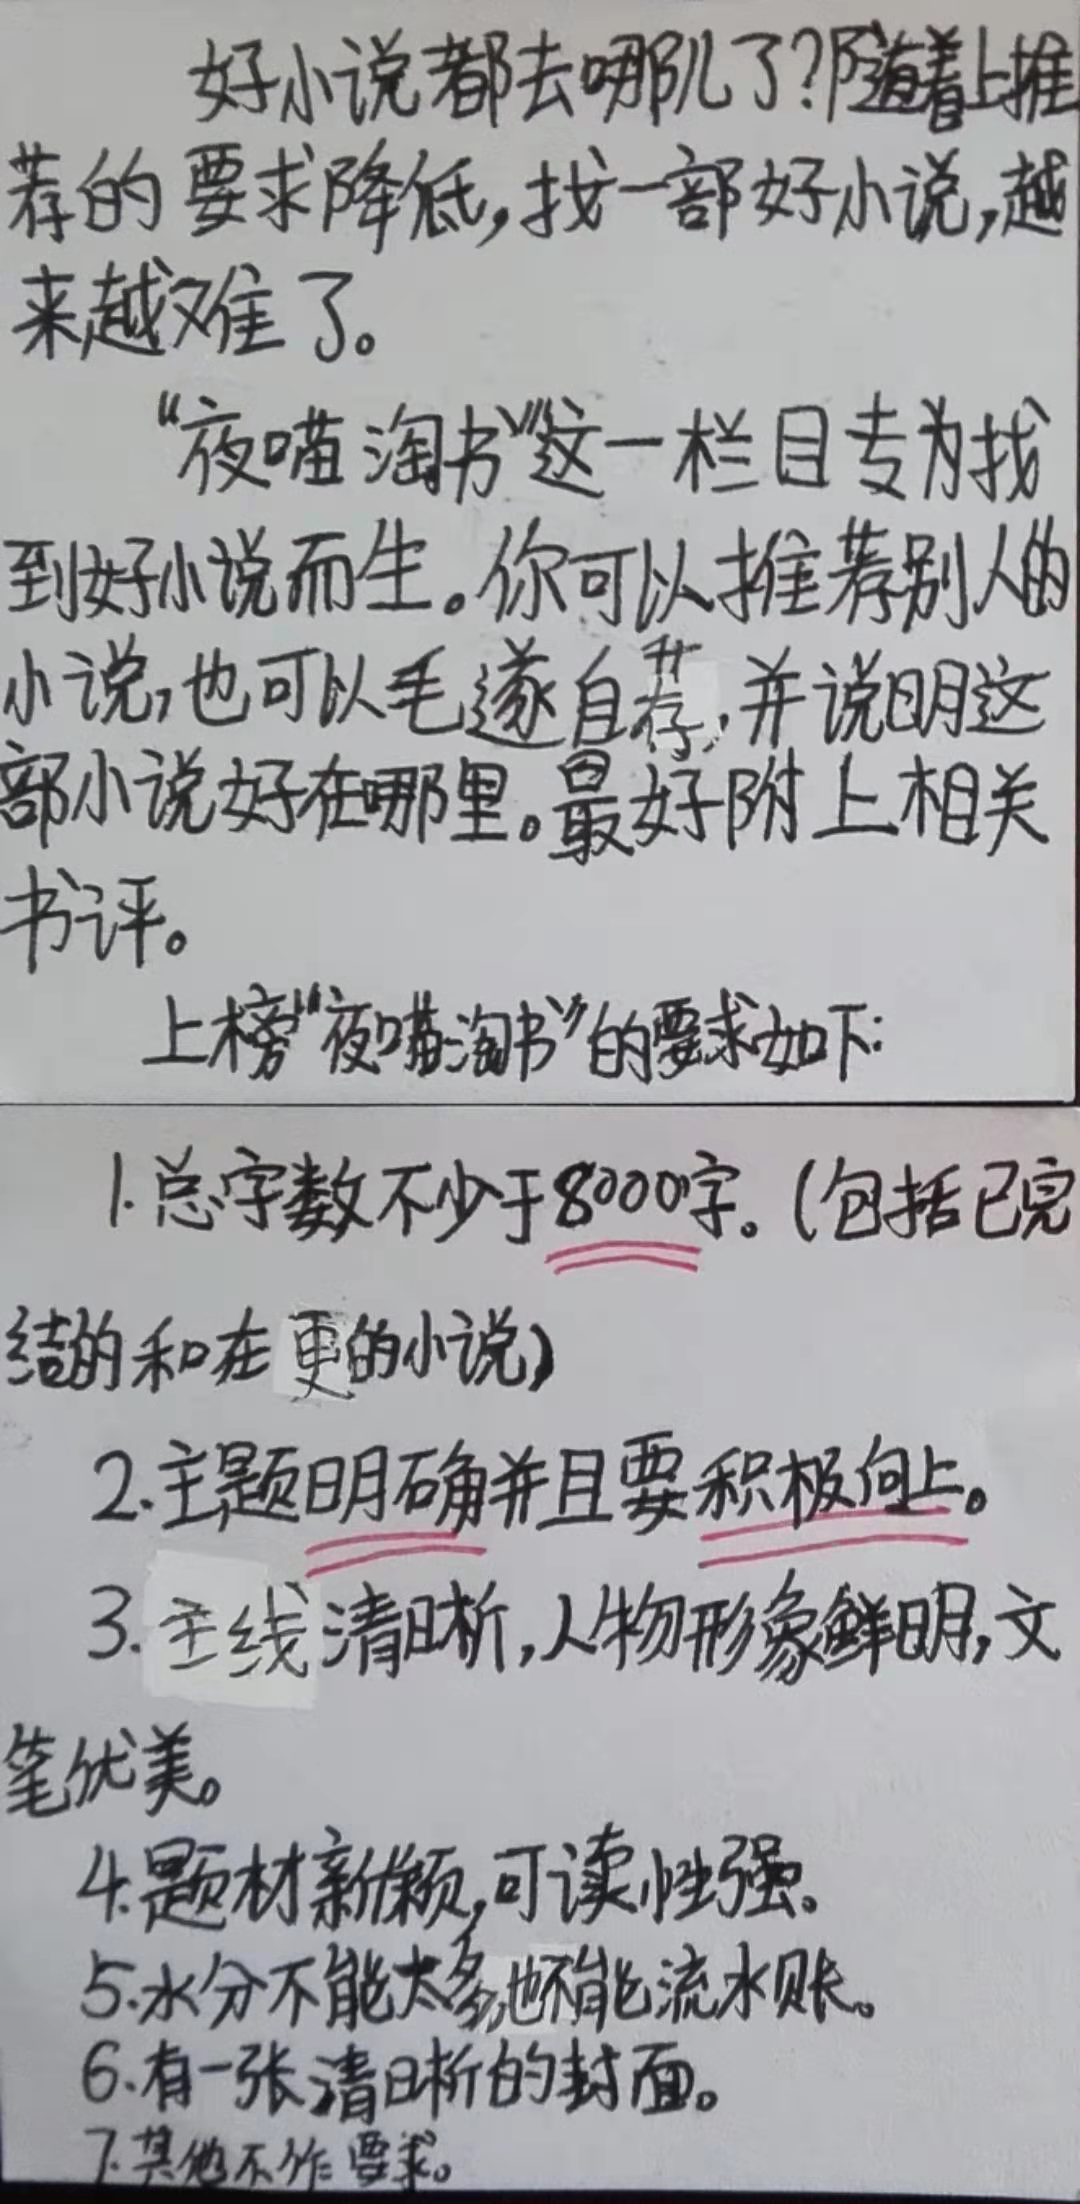 好小说都去哪儿了?随着上推
荐的要求降低,找一部好小说,越
来越难了。
“夜喵淘书”这一栏目专为找
到好小说而生。你可以推荐别人的
小说,也可以毛遂自荐,并说明这
部小说好在哪里。最好附上相关
书评。
上榜“夜喵淘书”的要求如下:
1.总字数不少于8000字。(包括已完
结的和在更的小说)
2.主题明确并且要积极向上。
3.主线清晰,人物形象鲜明,文
笔优美。
4.题材新颖,可读性强。
5.水分不能太多,也不能流水账。
6.有一张清晰的封面。
7.其他不作要求。